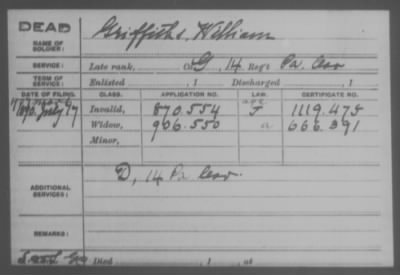 DEAD
Griffiths, William
NAME OF SOLDIER:
SERVICE: Late rank, Co. G, 14 Reg't Pa. Cav
TERM OF SERVICE: Enlisted , 1 Discharged , 1
DATE OF FILING. CLASS. APPLICATION NO. LAW. CERTIFICATE NO.
Invalid, 870.554 J 1119.475
1890. July 17 Widow, 906.550 a 666.391
Minor,
ADDITIONAL SERVICES: D, 14 Pa Cav.
REMARKS:
Died , 1 , at